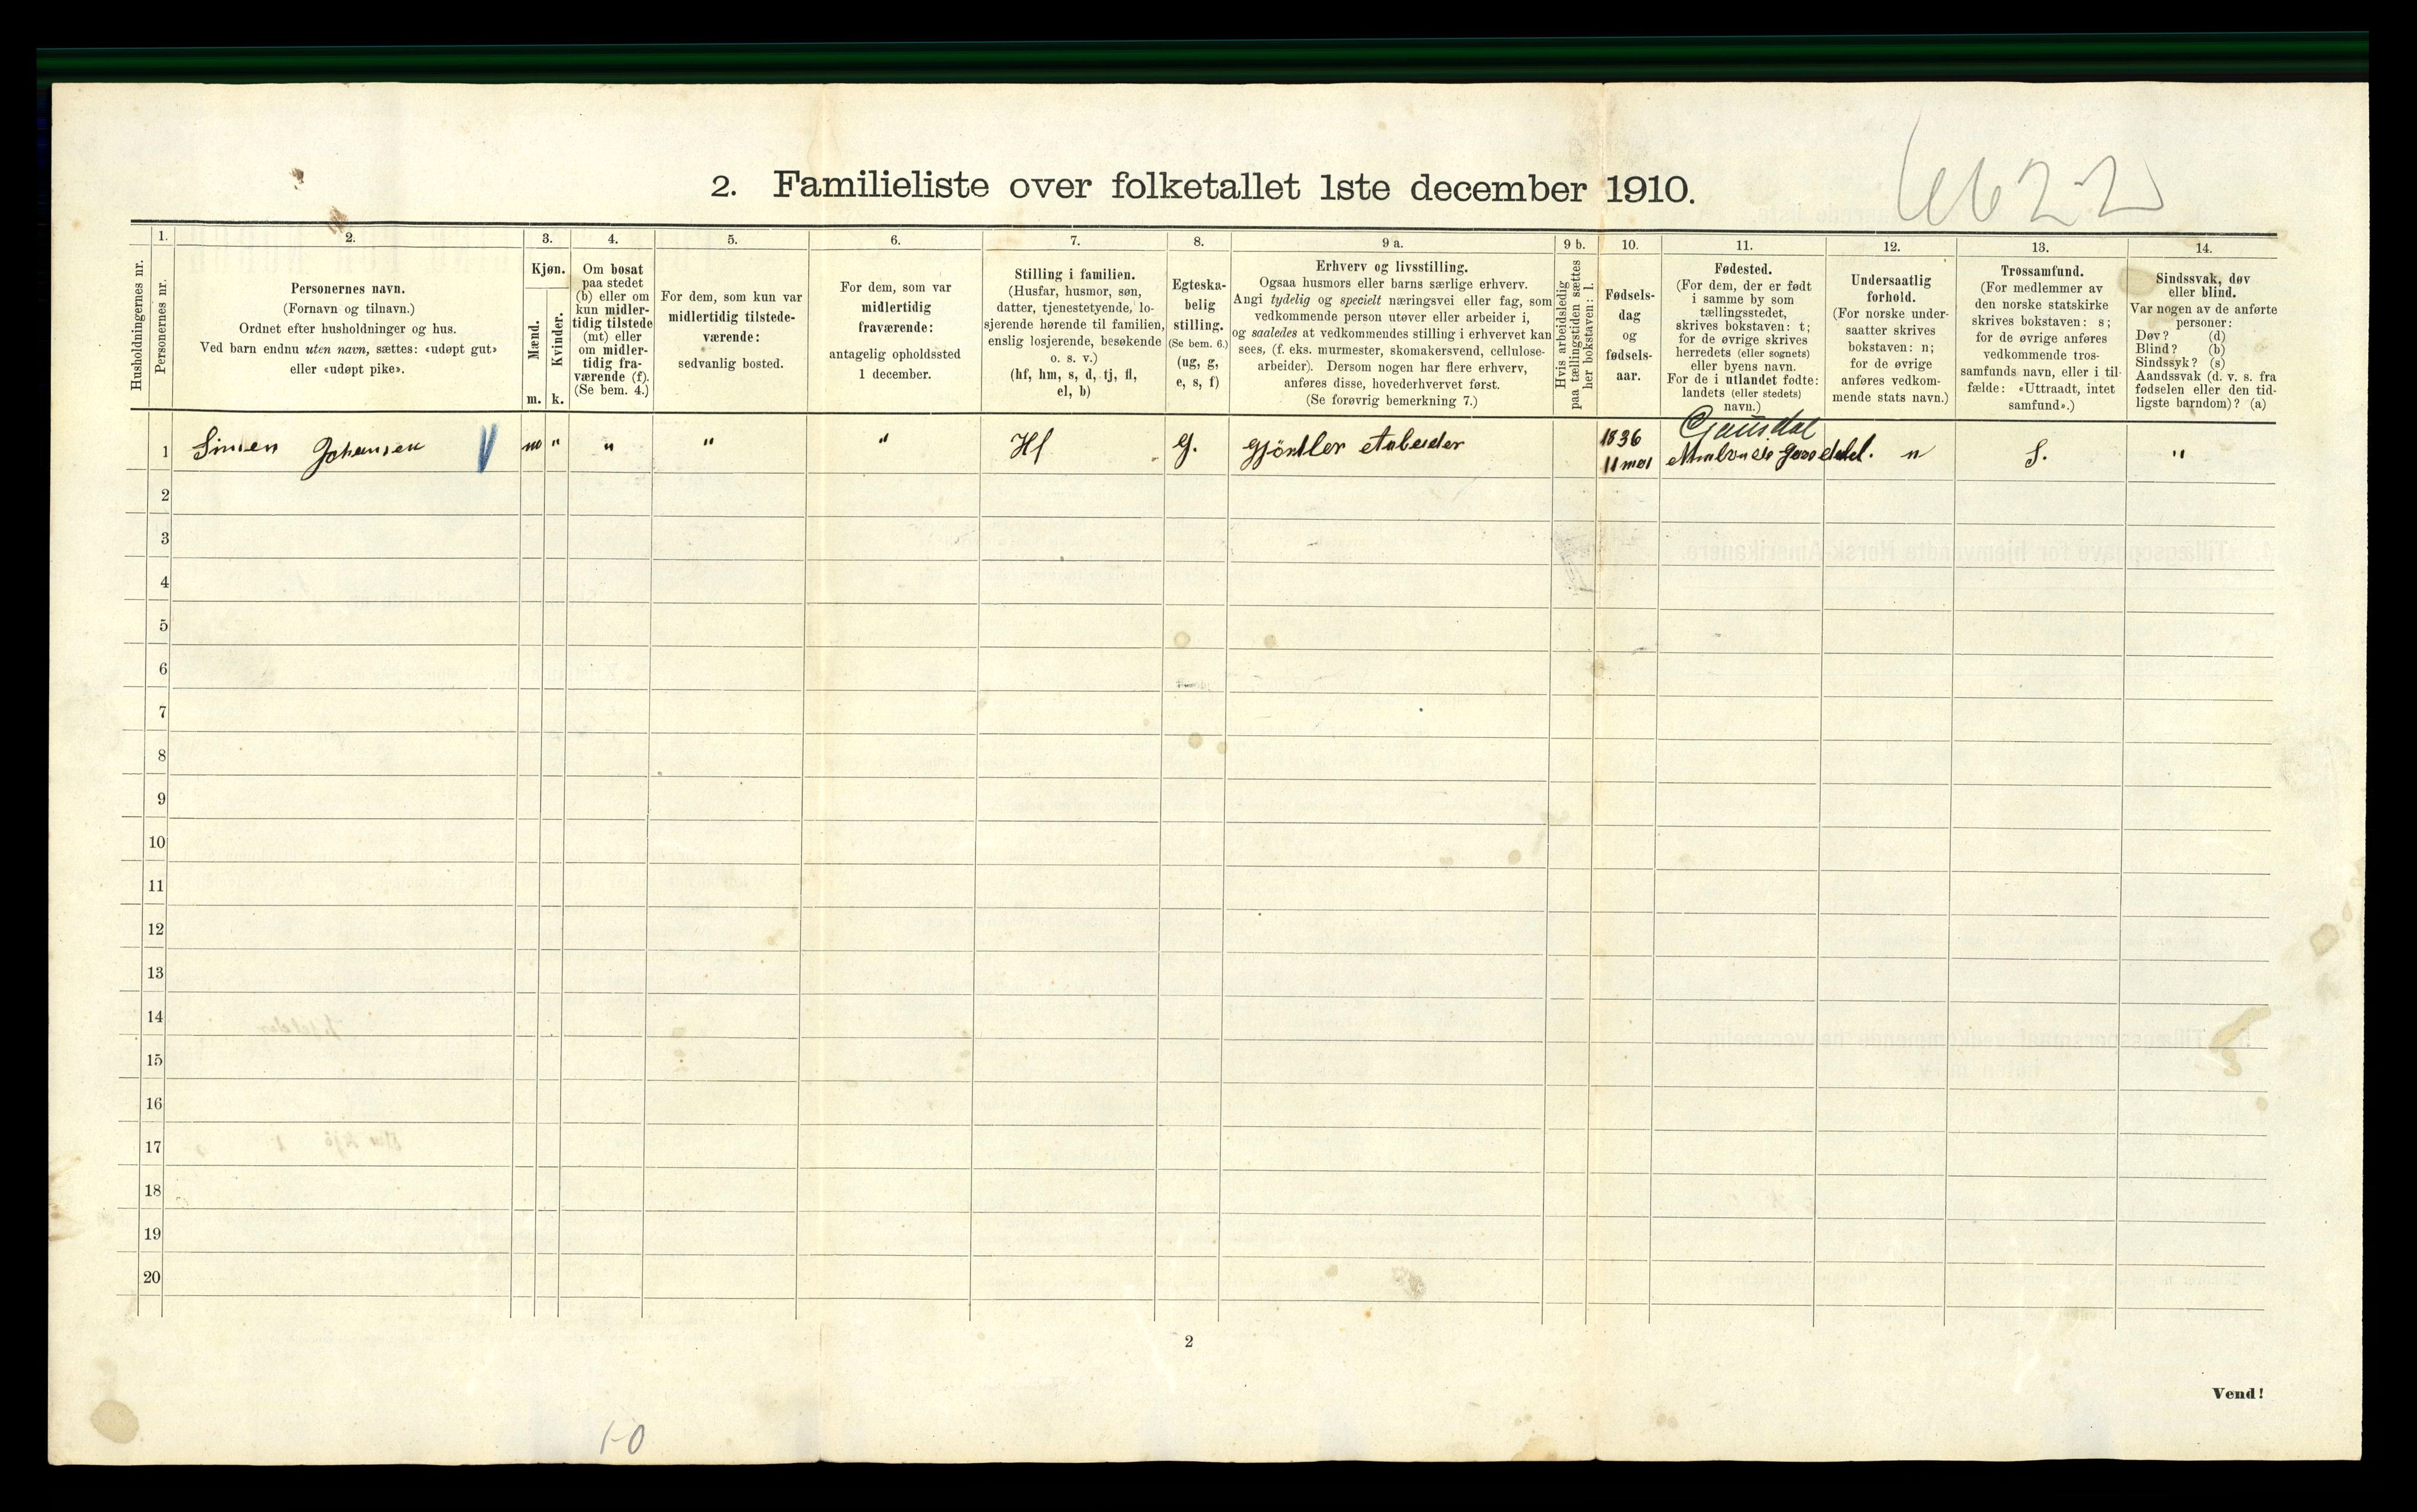 6622
2. Familieliste over folketallet 1ste december 1910.
Husholdningernes nr.
1.
Personernes nr.
2.
Personernes navn.
(Fornavn og tilnavn.)
Ordnet efter husholdninger og hus.
Ved barn endnu uten navn, sættes: «udøpt gut»
eller «udøpt pike».
3.
Kjøn.
Mænd.
m.
Kvinder.
k.
4.
Om bosat
paa stedet
(b) eller om
kun midler-
tidig tilstede
(mt) eller
om midler-
tidig fra-
værende (f).
(Se bem. 4.)
5.
For dem, som kun var
midlertidig tilstede-
værende:
sedvanlig bosted.
6.
For dem, som var
midlertidig
fraværende:
antagelig opholdssted
1 december.
7.
Stilling i familien.
(Husfar, husmor, søn,
datter, tjenestetyende, lo-
sjerende hørende til familien,
enslig losjerende, besøkende
o. s. v.)
(hf, hm, s, d, tj, fl,
el, b)
8.
Egteska-
belig
stilling.
(Se bem. 6.)
(ug, g,
e, s, f)
9 a.
Erhverv og livsstilling.
Ogsaa husmors eller barns særlige erhverv.
Angi tydelig og specielt næringsvei eller fag, som
vedkommende person utøver eller arbeider i,
og saaledes at vedkommendes stilling i erhvervet kan
sees, (f. eks. murmester, skomakersvend, cellulose-
arbeider). Dersom nogen har flere erhverv,
anføres disse, hovederhvervet først.
(Se forøvrig bemerkning 7.)
9 b.
Hvis arbeidsledig
paa tællingstiden sættes
her bokstaven: l.
10.
Fødsels-
dag
og
fødsels-
aar.
11.
Fødested.
(For dem, der er født
i samme by som
tællingsstedet,
skrives bokstaven: t;
for de øvrige skrives
herredets (eller sognets)
eller byens navn.
For de i utlandet fødte:
landets (eller stedets)
navn.)
12.
Undersaatlig
forhold.
(For norske under-
saatter skrives
bokstaven: n;
for de øvrige
anføres vedkom-
mende stats navn.)
13.
Trossamfund.
(For medlemmer av
den norske statskirke
skrives bokstaven: s;
for de øvrige anføres
vedkommende tros-
samfunds navn, eller i til-
fælde: «Uttraadt, intet
samfund».)
14.
Sindssvak, døv
eller blind.
Var nogen av de anførte
personer:
Døv? (d)
Blind? (b)
Sindssyk? (s)
Aandssvak (d. v. s. fra
fødselen eller den tid-
ligste barndom)? (a)
Gausdal
1 Simen Johansen m " " " " Hf G. Gjöntler Arbeider 1836 n S. "
11 mai
2
3
4
5
6
7
8
9
10
11
12
13
14
15
16
17
18
19
20
2
Vend!
1-0